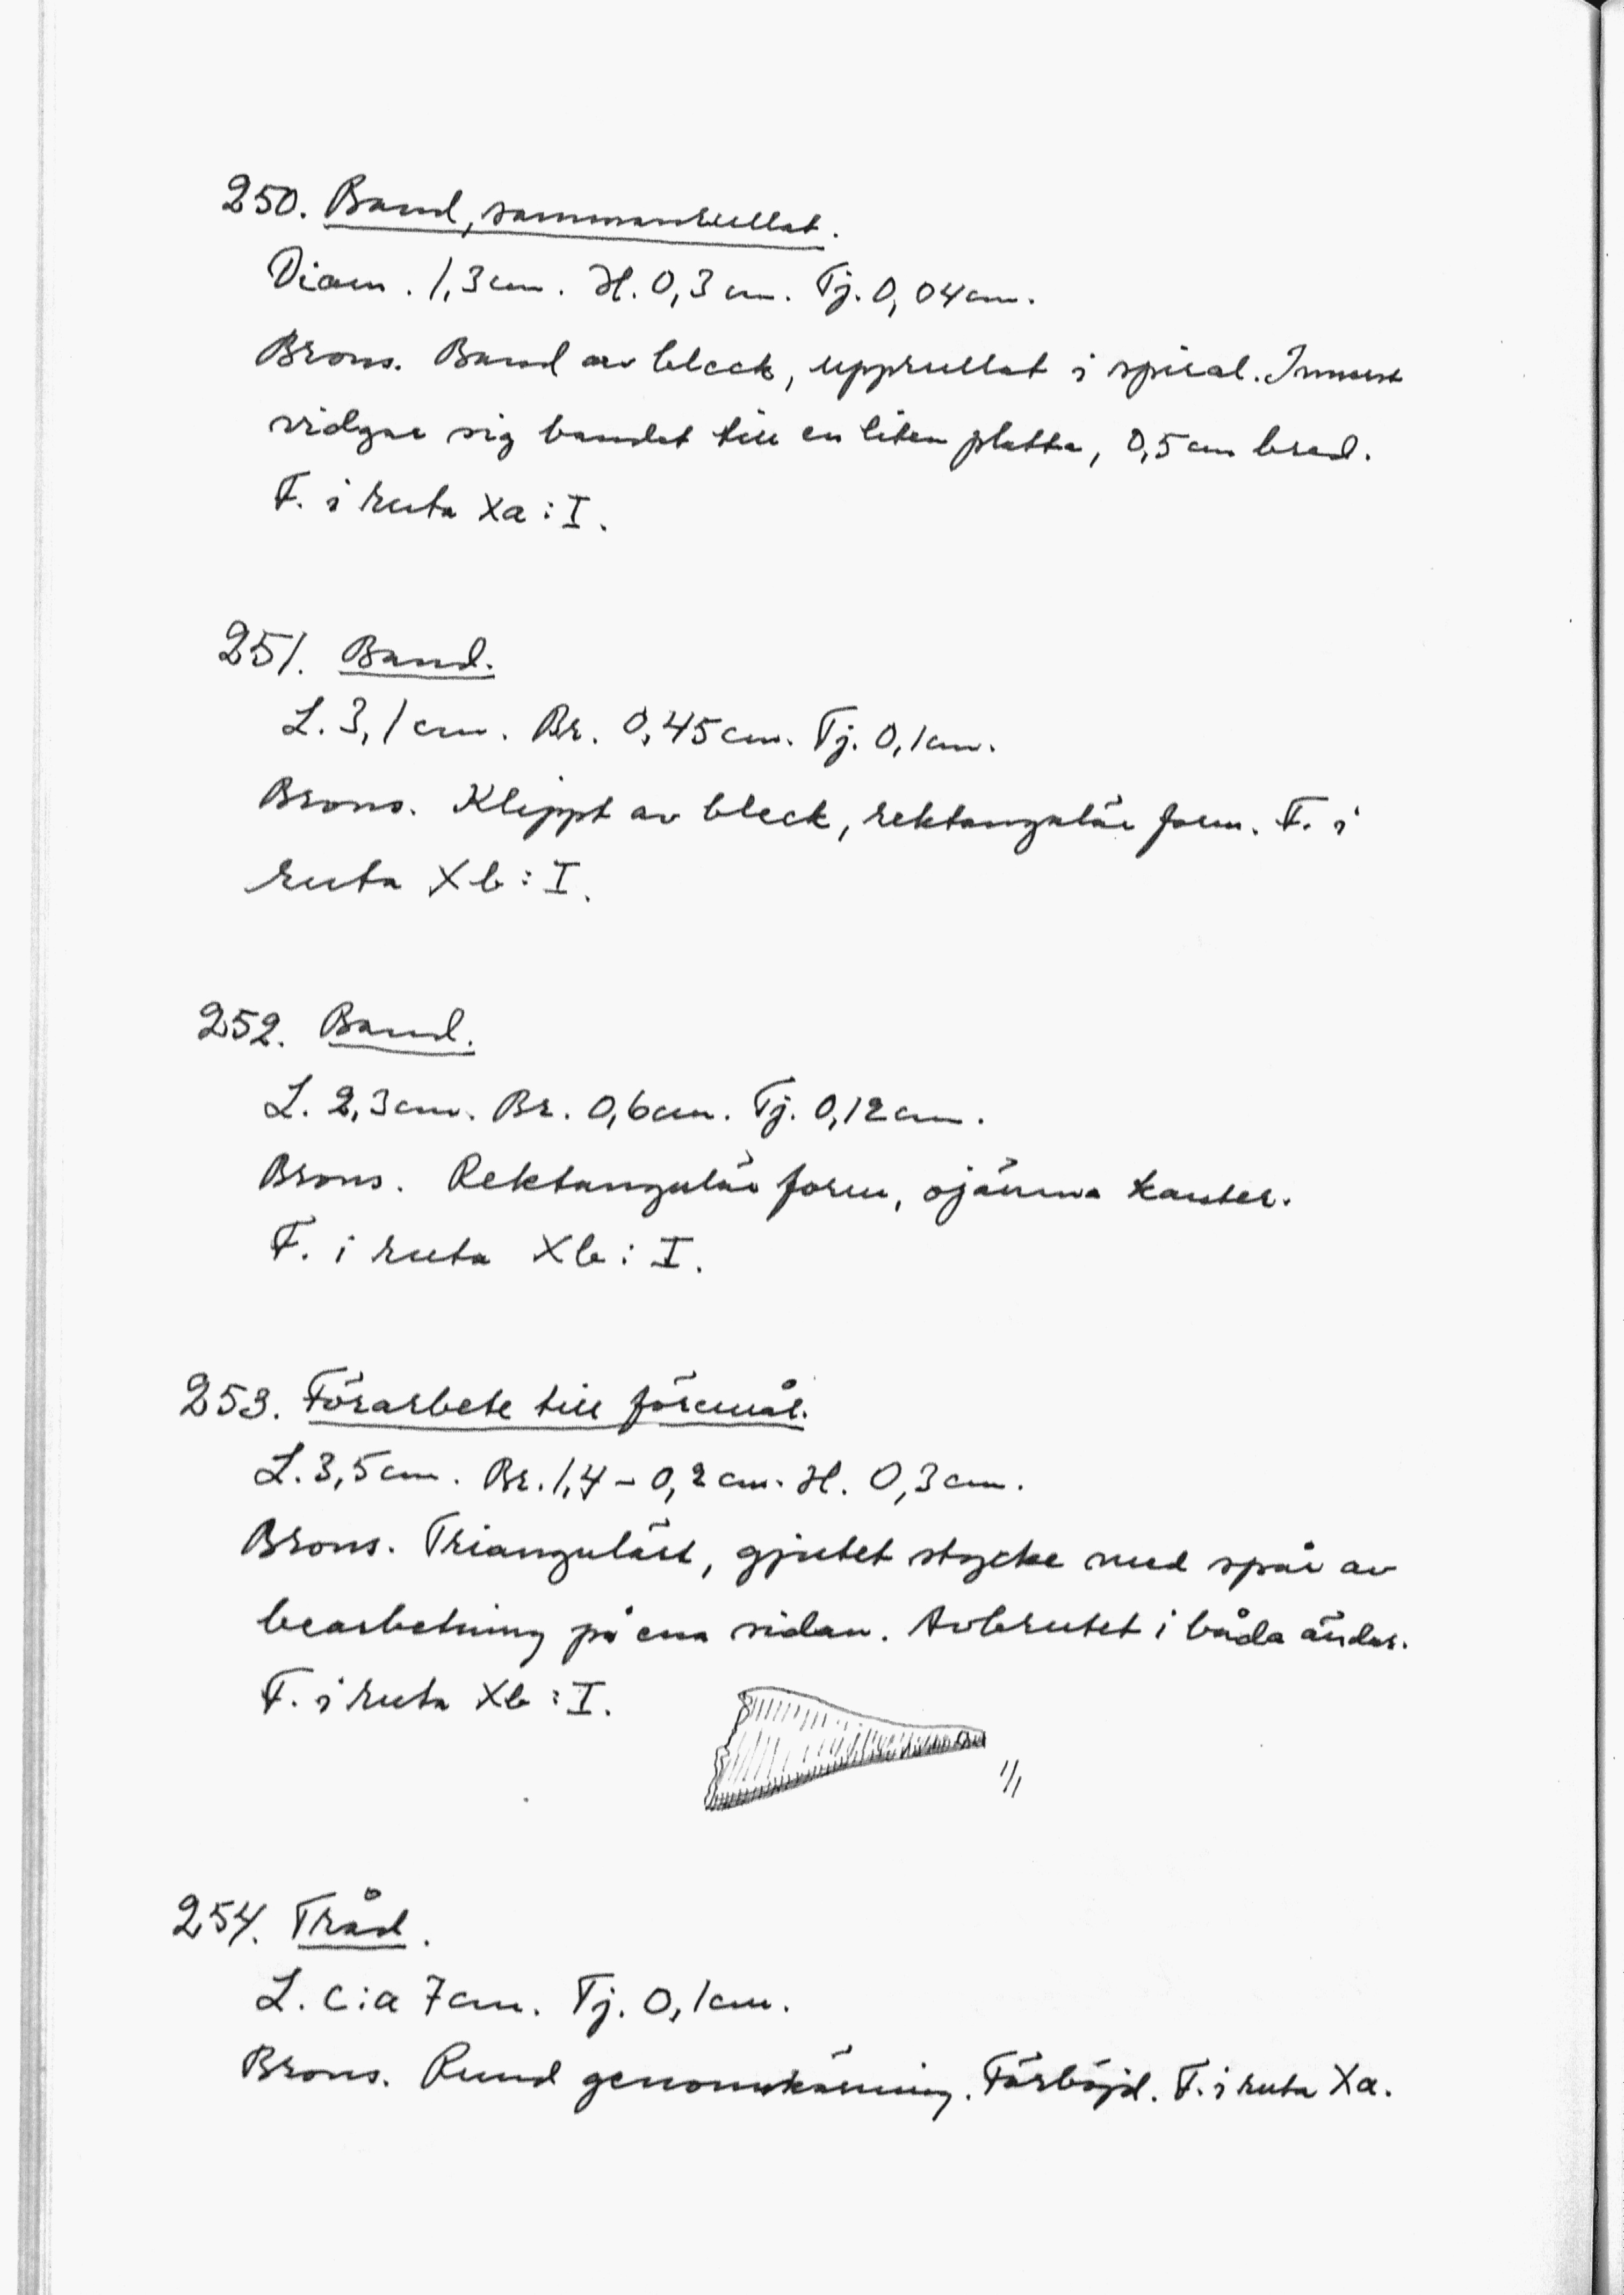 250. Band, sammanrullat.
Diam. 1,3 cm. H. 0,3 cm. Tj. 0,04 cm.
Brons. Band av bleck, upprullat i spiral. Innerst
vidgar sig bandet till en liten platta, 0,5 cm bred.
F. i ruta Xa : I.
251. Band.
L. 3,1 cm. Br. 0,45 cm. Tj. 0,1 cm.
Brons. Klippt av bleck, rektangulär form. F. i
ruta Xb : I.
252. Band.
L. 2,3 cm. Br. 0,6 cm. Tj. 0,12 cm.
Brons. Rektangulär form, ojämna kanter.
F. i ruta Xb : I.
253. Förarbete till föremål.
L. 3,5 cm. Br. 1,4 – 0,2 cm. H. 0,3 cm.
Brons. Triangulärt, gjutet stycke med spår av
bearbetning på ena sidan. Avbrutet i båda ändar.
F. i ruta Xb : I.
1/1
254. Tråd.
L. c:a 7 cm. Tj. 0,1 cm.
Brons. Rund genomskärning. Förböjd. F. i ruta Xa.